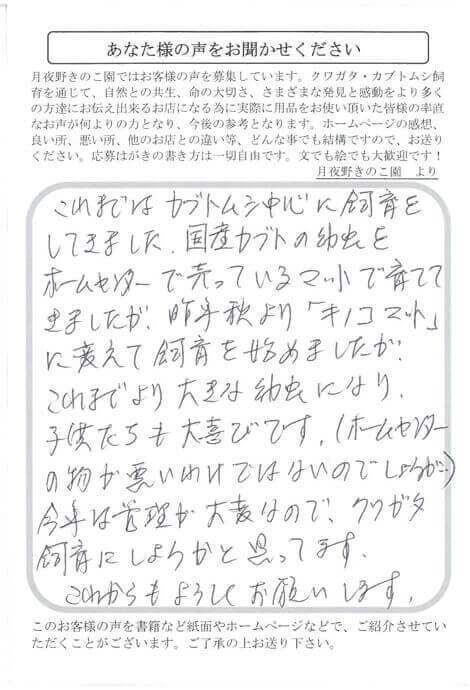 あなた様の声をお聞かせください
月夜野きのこ園ではお客様の声を募集しています。クワガタ・カブトムシ飼
育を通じて、自然との共生、命の大切さ、さまざまな発見と感動をより多く
の方達にお伝え出来るお店になる為に実際に用品をお使い頂いた皆様の率直
なお声が何よりの力となり、今後の参考となります。ホームページの感想、
良い所、悪い所、他のお店との違い等、どんな事でも結構ですので、お送り
ください。応募はがきの書き方は一切自由です。文でも絵でも大歓迎です！
月夜野きのこ園　より
これまではカブトムシ中心に飼育を
してきました。国産カブトの幼虫を
ホームセンターで売っているマットで育てて
きましたが、昨年秋より「キノコマット」
に変えて飼育を始めましたが、
これまでより大きな幼虫になり、
子供たちも大喜びです。(ホームセンター
の物が悪いわけではないのでしょうが…)
今年は管理が大変なので、クワガタ
飼育にしようかと思ってます。
これからもよろしくお願いします。
このお客様の声を書籍など紙面やホームページなどで、ご紹介させてい
ただくことがございます。ご了承の上お送り下さい。